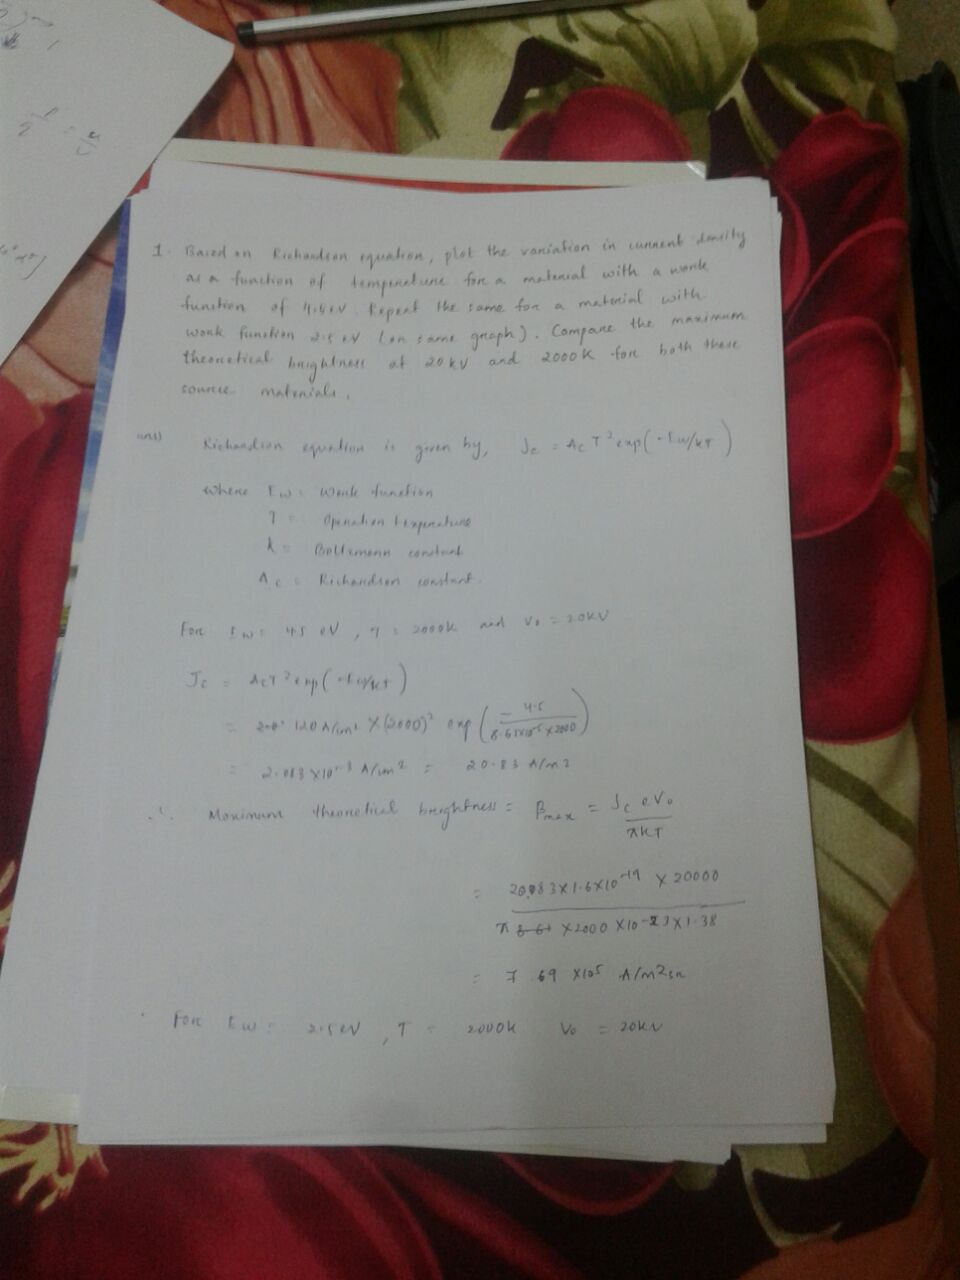 1. Based on Richardson equation, plot the variation in current density
as a function of temperature for a material with a work
function of 4.5 eV. Repeat the same for a material with
work function 2.5 eV (on same graph). Compare the maximum
theoretical brightness at 20 kV and 2000K for both these
source materials.
ans) Richardson equation is given by, Jc = Ac T² exp(-Ew/kT)
where Ew = Work function
T = Operation temperature
k = Boltzmann constant
Ac = Richardson constant.
For Ew = 4.5 eV, T = 2000K and V₀ = 20KV
Jc = AcT² exp(-Ew/kT)
= 120 A/cm² × (2000)² exp(-4.5/8.61×10⁻⁵×2000)
= 2.083 × 10⁻³ A/cm² = 20.83 A/m²
∴ Maximum theoretical brightness = βmax = Jc e V₀/πkT
= 20.83×1.6×10⁻¹⁹ × 20000/π × 2000 × 10⁻²³ × 1.38
= 7.69 × 10⁵ A/m²sr
For Ew = 2.5 eV, T = 2000K V₀ = 20kV